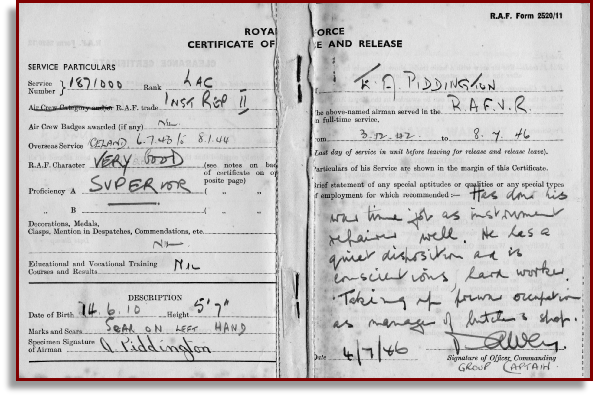 R.A.F. Form 2520/11
ROYAL FORCE
CERTIFICATE OF E AND RELEASE
SERVICE PARTICULARS
Service Number } 1871000 Rank LAC
Air Crew Category and/or R.A.F. trade INST REP II
Air Crew Badges awarded (if any) NIL
Overseas Service ICELAND 6.7.43 to 8.1.44
R.A.F. Character VERY GOOD (see notes on back of certificate on opposite page)
Proficiency A SUPERIOR ( „ „
„ B ( „ „
Decorations, Medals,
Clasps, Mention in Despatches, Commendations, etc.
NIL
Educational and Vocational Training
Courses and Results NIL
DESCRIPTION
Date of Birth 14.6.10 Height 5' 7"
Marks and Scars SCAR ON LEFT HAND
Specimen Signature
of Airman Piddington
A. PIDDINGTON
The above-named airman served in the R.A.F.V.R.
on full-time service,
from 3.12.42 to 8.7.46
(Last day of service in unit before leaving for release and release leave).
Particulars of his Service are shown in the margin of this Certificate.
Brief statement of any special aptitudes or qualities or any special types
of employment for which recommended :— Has done his
war time job as instrument
repairer well. He has a
quiet disposition and is
conscientious, hard worker.
Taking up former occupation
as manager of butcher's shop.
Date 4/7/46
Signature of Officer Commanding
GROUP CAPTAIN.